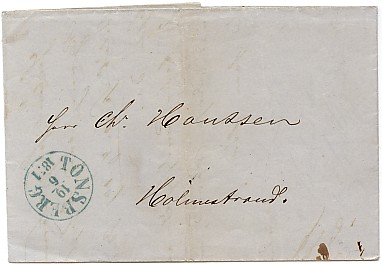 Herr Chr. Hanssen
Holmestrand.
TONSBERG
19
6